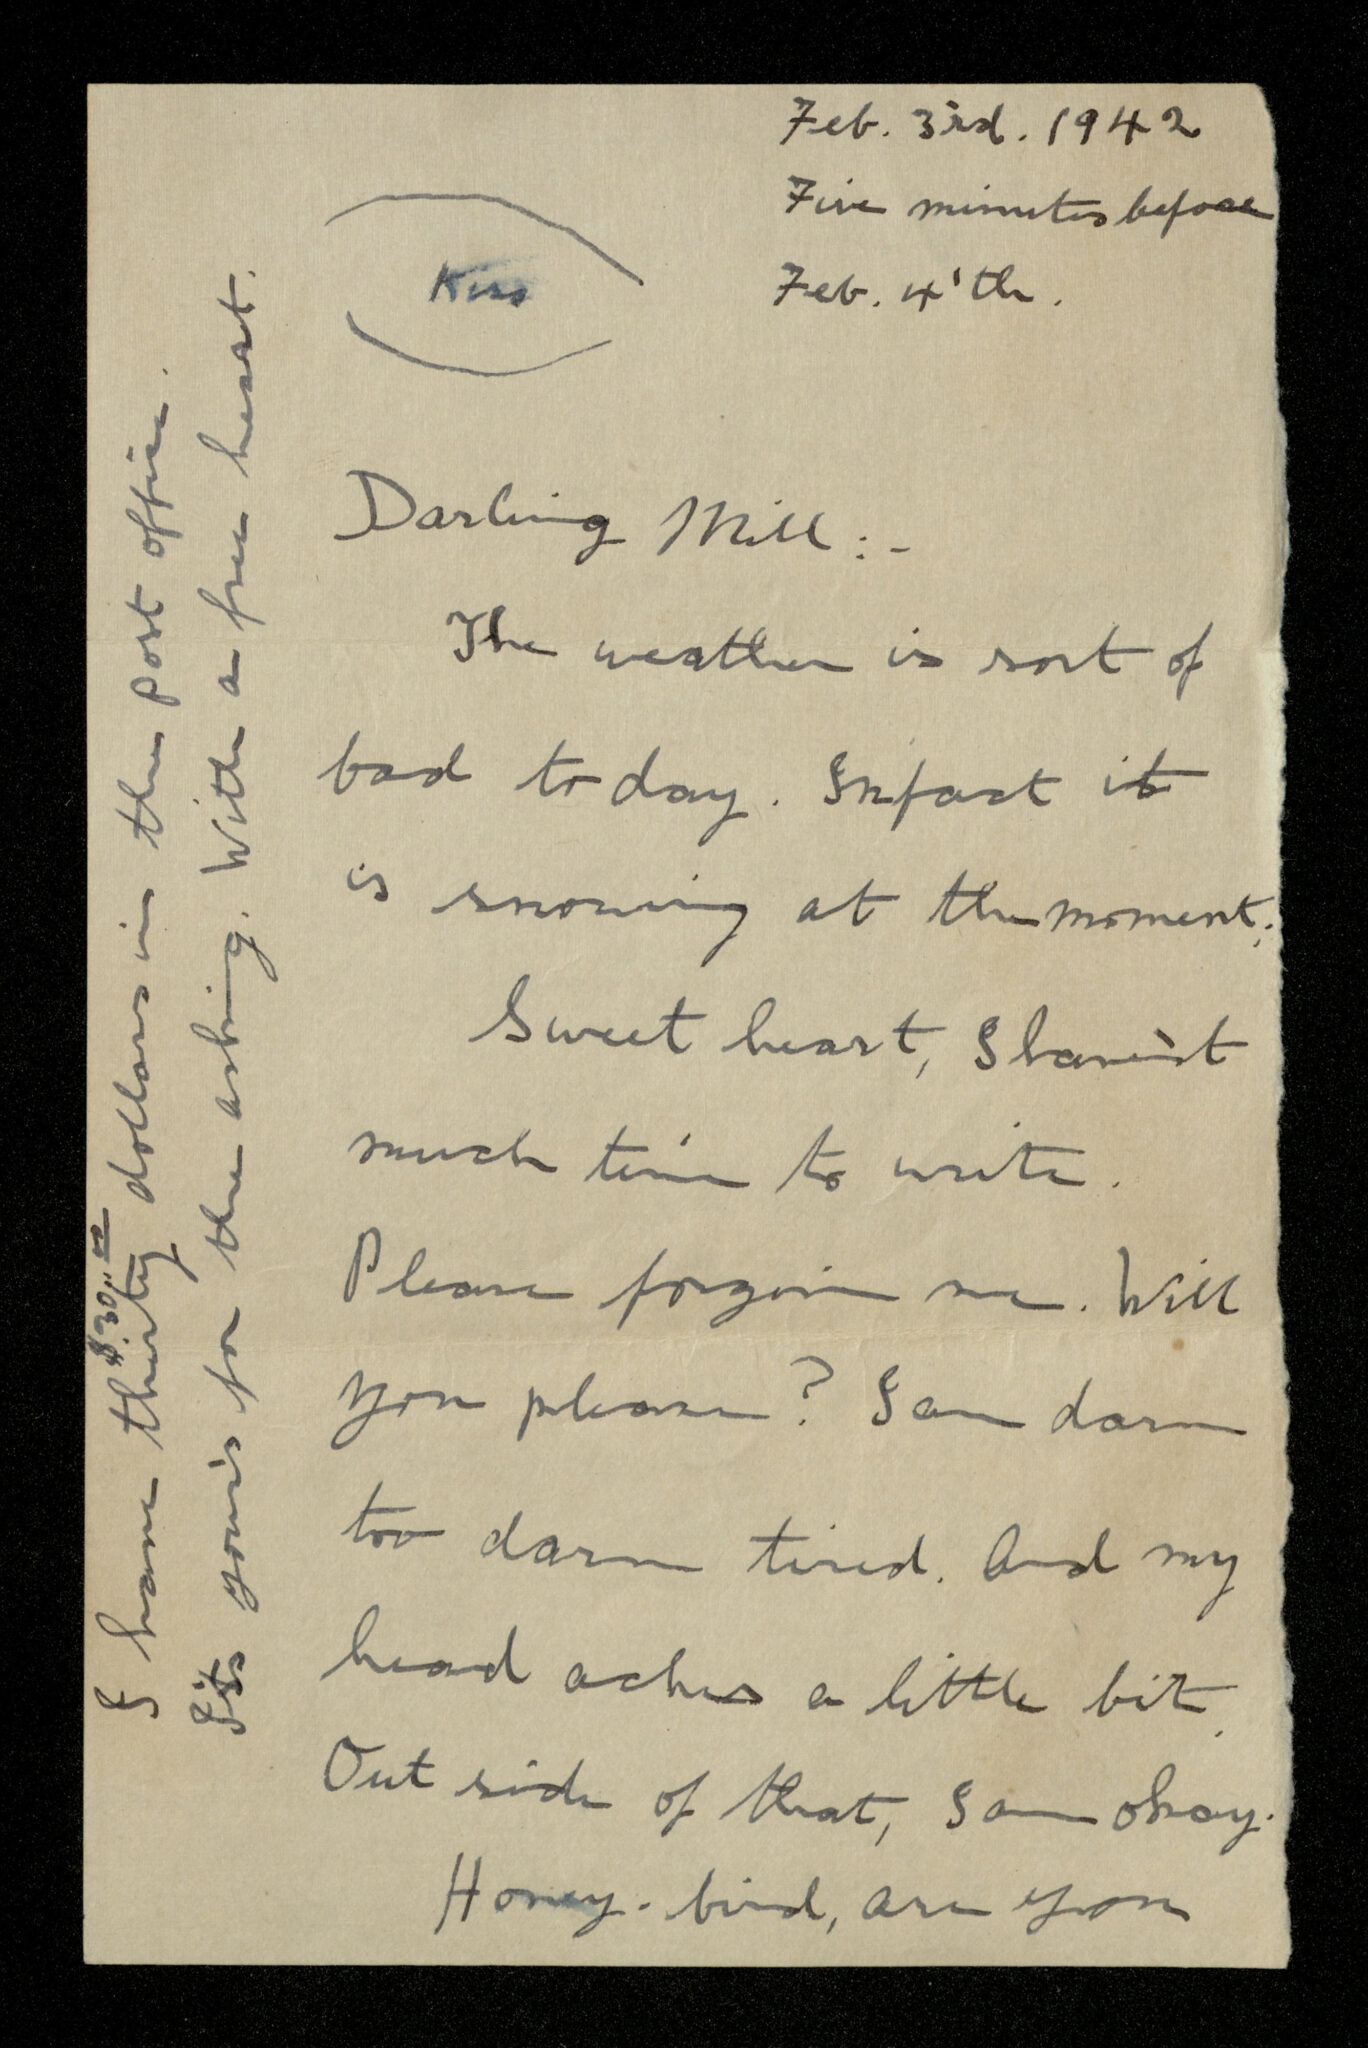 Feb. 3rd. 1942
Five minutes before
Feb. 4'th.
Kiss
Darling Mill:-
The weather is sort of
bad to day. Infact it
is snowing at the moment.
Sweet heart, I haven't
much time to write.
Please forgive me. Will
you please? I am darn
too darn tired. And my
head aches a little bit.
Out side of that, I am okay.
Honey-bird, are you
$30.00
I have thirty dollars in the post office.
It's your's for the asking. With a free heart.